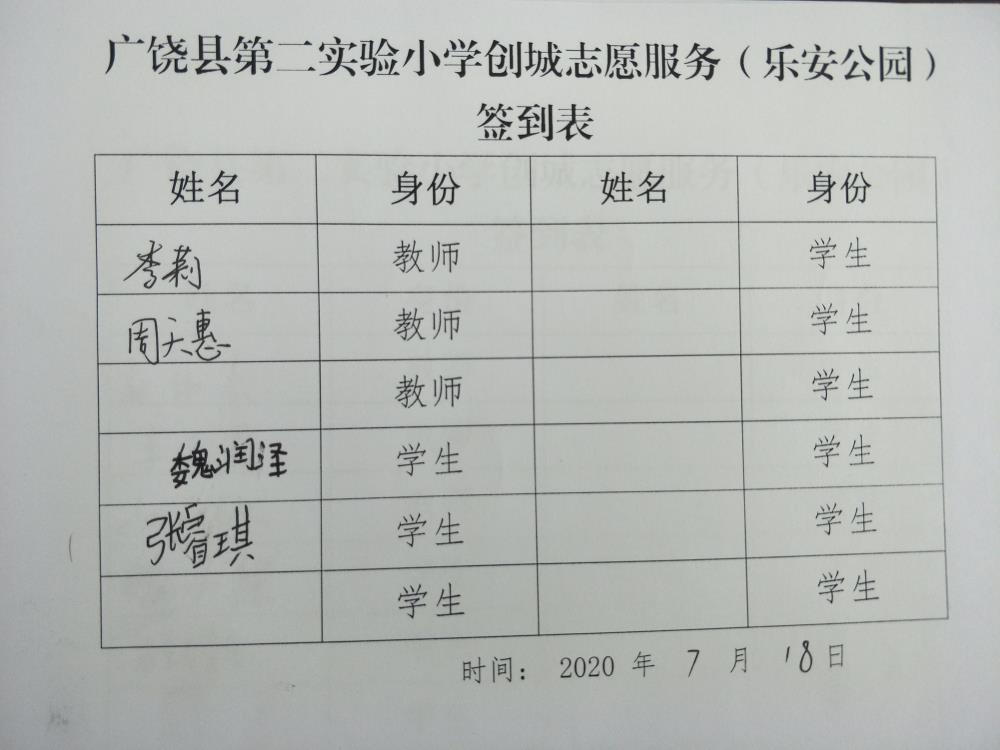 广饶县第二实验小学创城志愿服务（乐安公园）
签到表
姓名 身份 姓名 身份
李莉 教师 学生
周天惠 教师 学生
教师 学生
魏润泽 学生 学生
张睿琪 学生 学生
学生 学生
时间： 2020 年 7 月 18 日